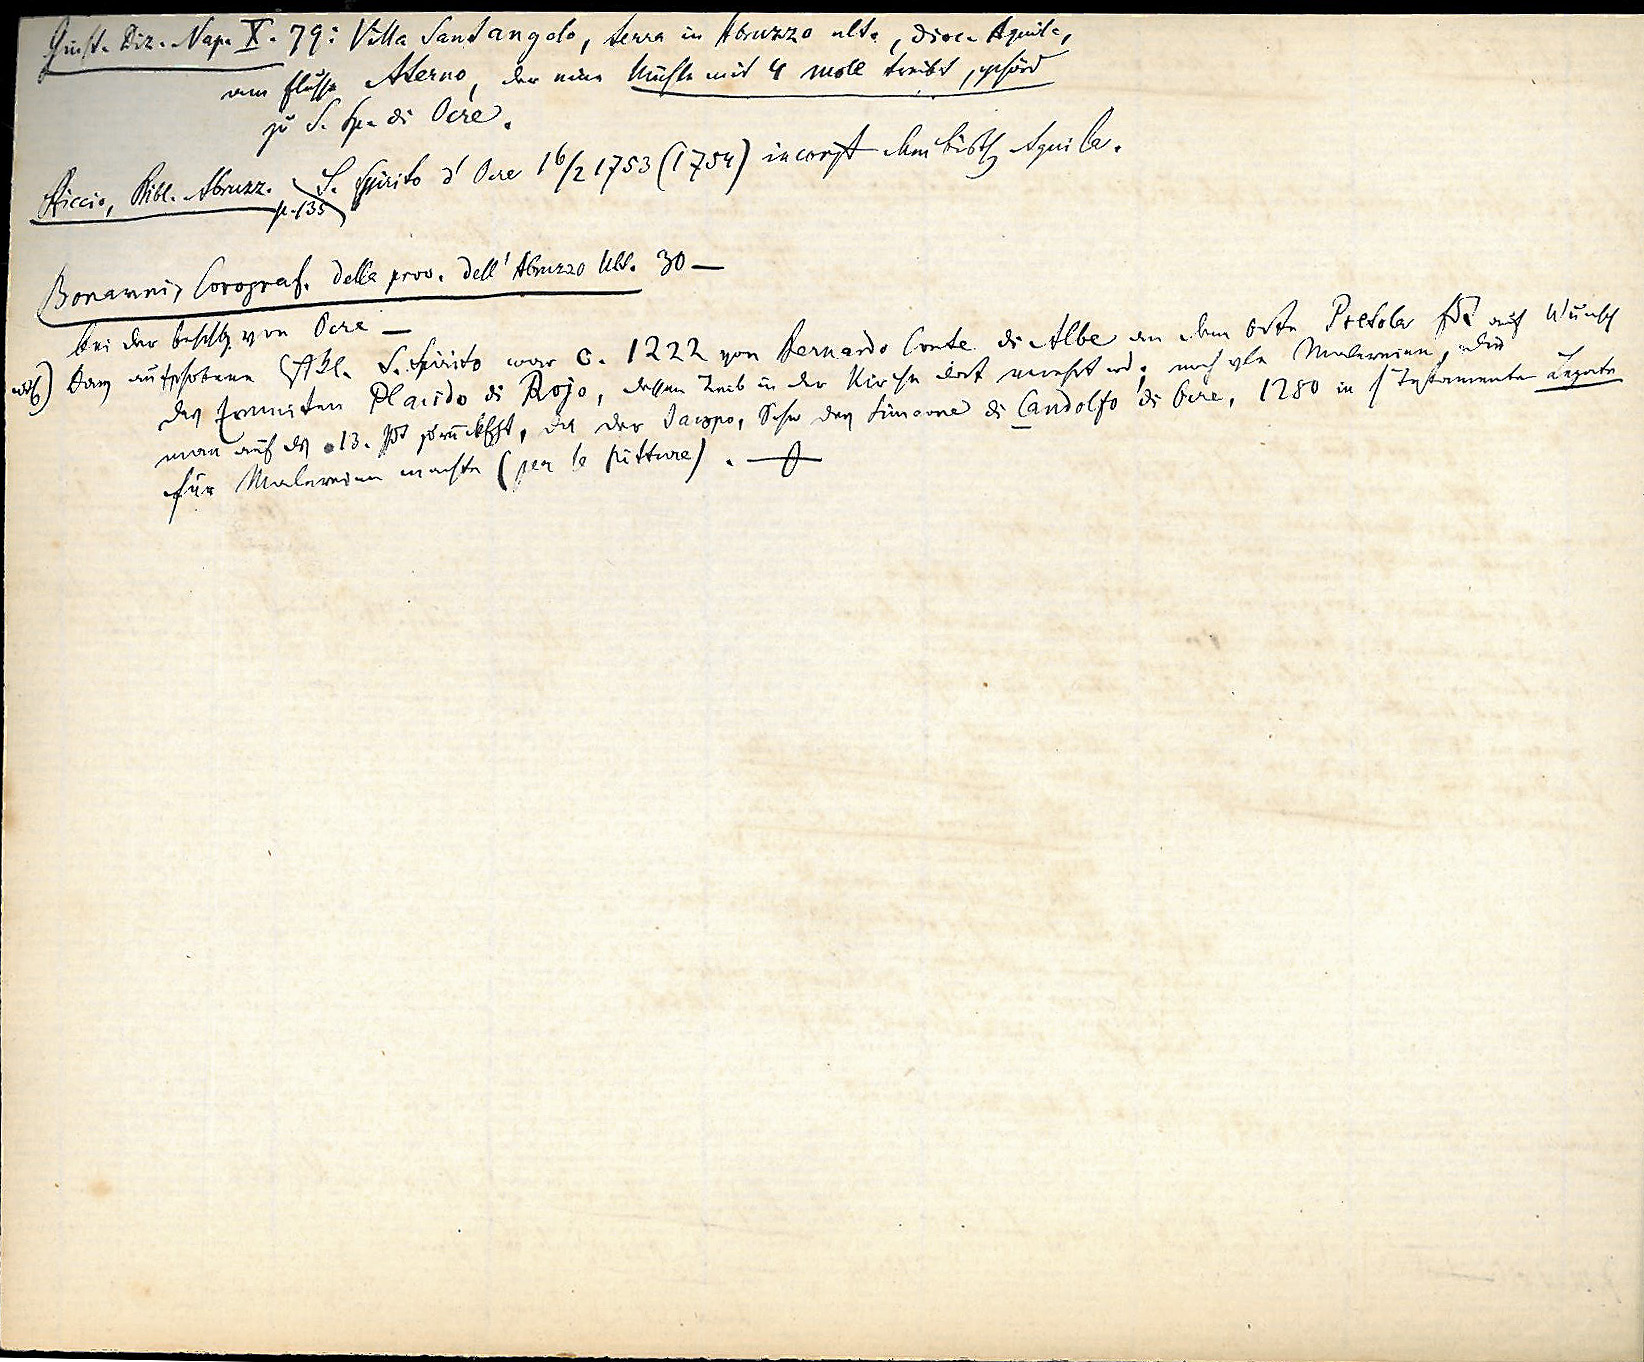 Giust. Diz. Nap. X. 79: Villa Santangelo, terra in Abruzzo ult., dioc. Aquil.,
am Flusse Aterno, der eine Mühle mit 4 mole treibt, gehört
zu S. Sp. di Ocre.
Riccio, Bibl. Abruzz. p. 135 S. Spirito d'Ocre 16/2 1753 (1754) incorpt dem Bisth Aquila.
Bonanni, Corograf. della prov. dell'Abruzzo Ult. 30 —
bei der Beschbg von Ocre —
Das aufgehobene CistKl. S. Spirito war c. 1222 von Berardo Conte di Albe an dem Orte Pretola auf Wunsch
des Eremiten Placido di Rojo, dessen Leib in der Kirche dort verehrt wd; noch vle Malereien, die
man auf ds 13. Jht zurückführt, da der Jacopo, Sohn des Simone di Candolfo di Ocre, 1280 in s Testamente Legate
für Malereien machte (per le pitture).